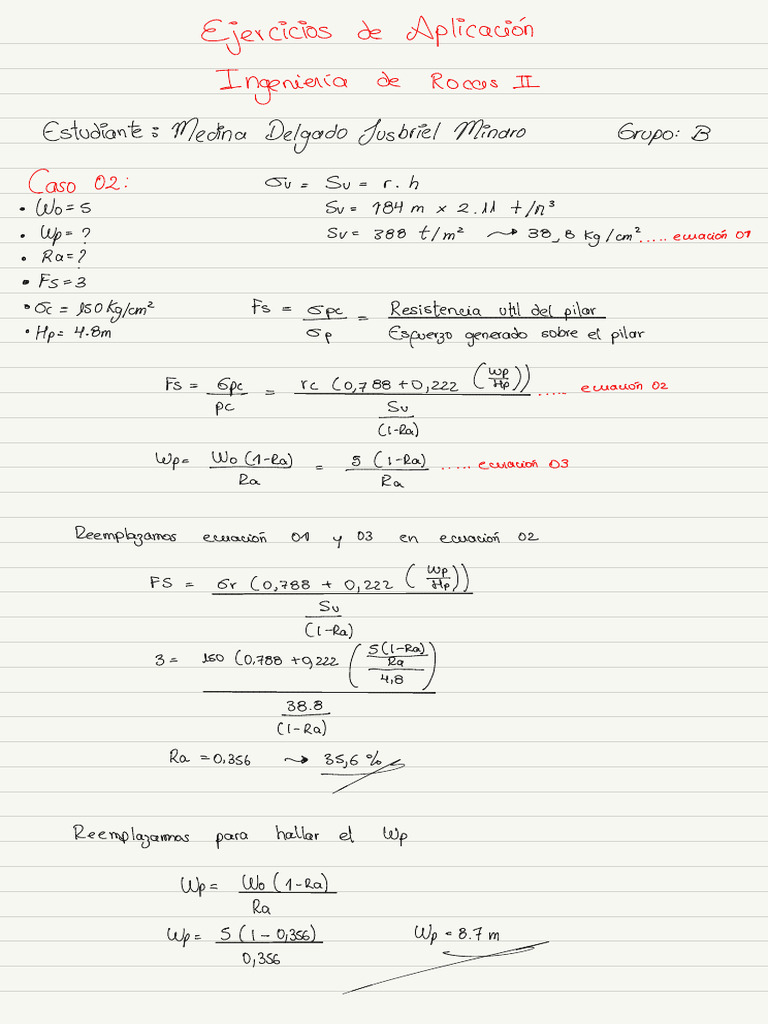 Ejercicios de Aplicación
Ingeniería de Rocas II
Estudiante: Medina Delgado Jusbriel Mindro Grupo: B
Caso 02:
• Wo = 5
• Wp = ?
• Ra = ?
• FS = 3
• σc = 150 Kg/cm²
• Hp = 4.8m
σv = Sv = r . h
Sv = 184 m x 2.11 t/m³
Sv = 388 t/m² → 38,8 kg/cm² ..... ecuación 01
Fs = σpc / σp = Resistencia util del pilar / Esfuerzo generado sobre el pilar
Fs = σpc / pc = rc (0,788 + 0,222 (Wp/Hp)) / (Sv / (1-Ra)) ..... ecuación 02
Wp = Wo (1-Ra) / Ra = 5 (1-Ra) / Ra ..... ecuación 03
Reemplazamos ecuación 01 y 03 en ecuación 02
FS = σr (0,788 + 0,222 (Wp/Hp)) / (Sv / (1-Ra))
3 = 150 (0.788 + 0,222 (5(1-Ra) / Ra / 4,8)) / (38.8 / (1-Ra))
Ra = 0,356 → 35,6 %
Reemplazamos para hallar el Wp
Wp = Wo (1-Ra) / Ra
Wp = 5 (1 - 0,356) / 0,356 Wp = 8.7 m